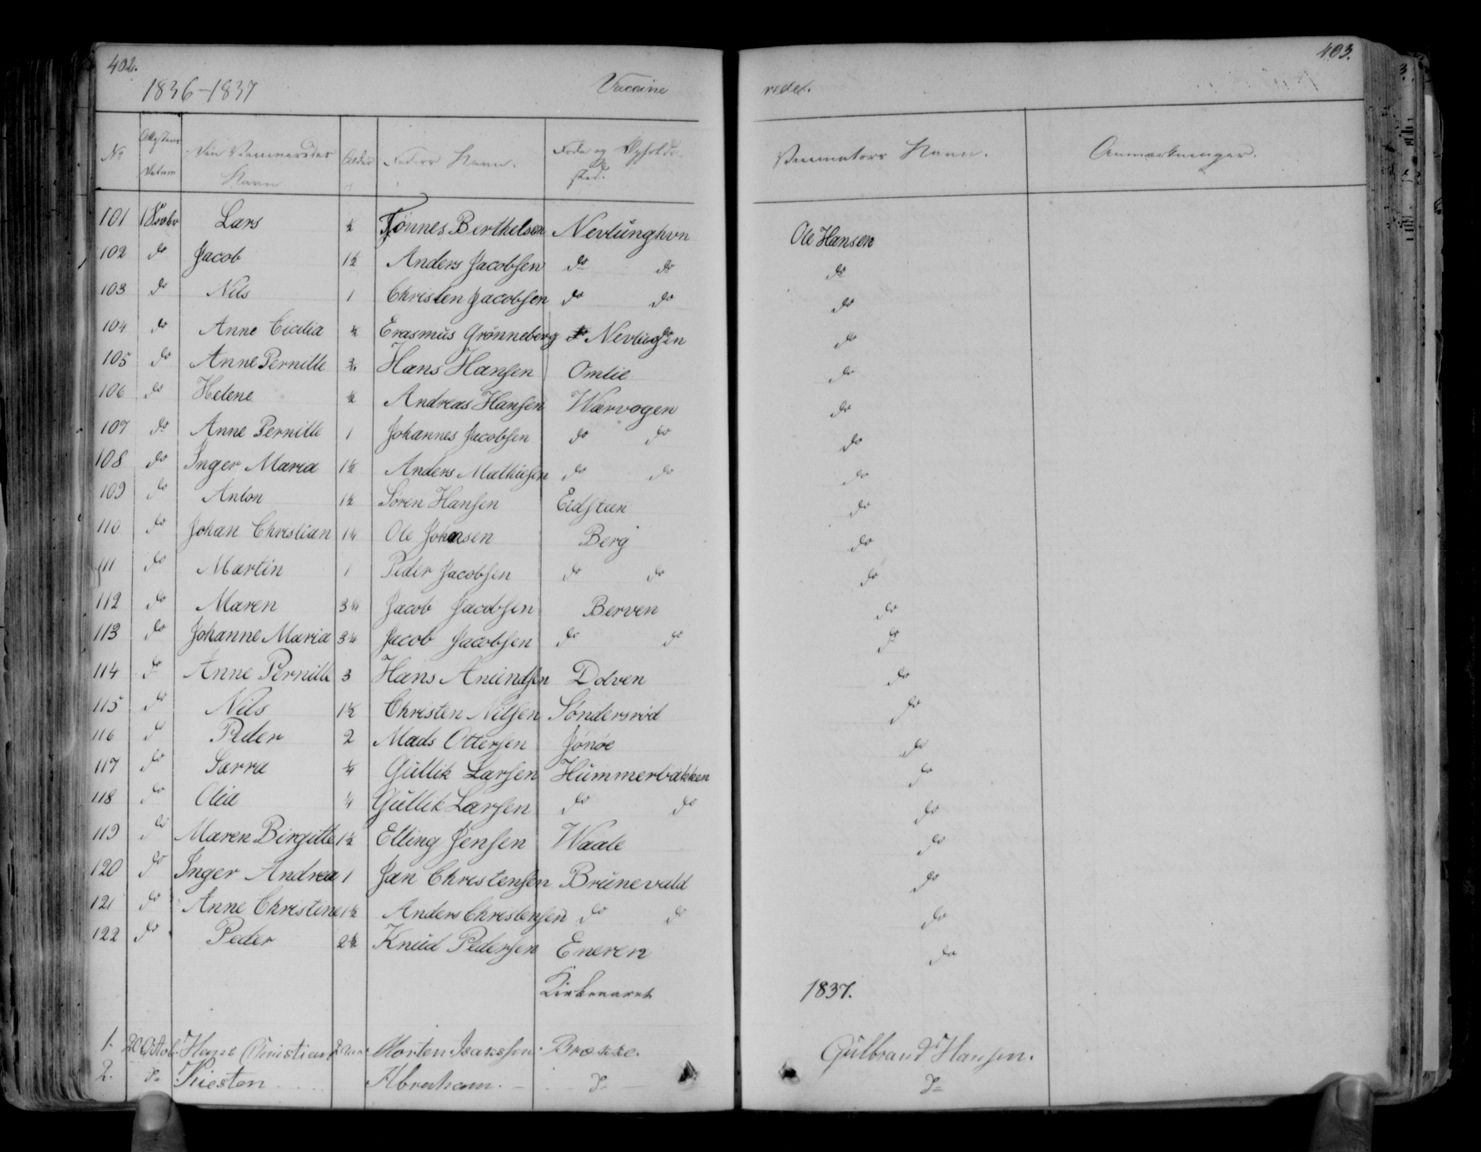 402.
403.
1836-1837
Vaccine
redet.
No
Attestens Datum
Den Vaccineredes Navn
Alder
Faders Navn.
Føde og Opholds sted.
Vaccinators Navn.
Anmærkninger.
101 Lars ½ Tønnes Berthelsen Nevlunghvn Ole Hansen
102 do Jacob 1½ Anders Jacobsen do do do
103 do Nils 1 Christen Jacobsen do do do
104 do Anne Cecilia Erasmus Grønneberg Nevlugen do
105 do Anne Pernille Hans Hansen Omlie do
106 do Helene Andreas Hansen Warvogen do
107 do Anne Pernille 1 Johannes Jacobsen do do do
108 do Inger Maria 1½ Anders Mathiesen do do do
109 do Anton 1½ Søren Hansen Eidsteen do
110 do Johan Christian Ole Johansen Berg do
111 do Martin 1 Peder Jacobsen do do do
112 do Maren Jacob Jacobsen Berven do
113 do Johanne Maria Jacob Jacobsen do do do
114 do Anne Pernille 3 Hans Anundsen Dolven do
115 do Nils 1½ Christen Nilsen Søndersrød do
116 do Peder 2 Mads Ottersen Jonøe do
117 do Sarra Gullik Larsen Hummerbakken do
118 do Olia Gullik Larsen do do do
119 do Maren Birgitte 1½ Elling Jensen Waale do
120 do Inger Andrea 1 Jan Christensen Brunevald do
121 do Anne Christine 1½ Anders Christensen do do do
122 do Peder 2½ Knud Pedersen Eneren do
Kirkeaaret 1837.
1. 20 Octob. Hans Christian Morten Isaksen. Brække. Gulbrand Hansen.
2. do Kiesten Abraham. do do